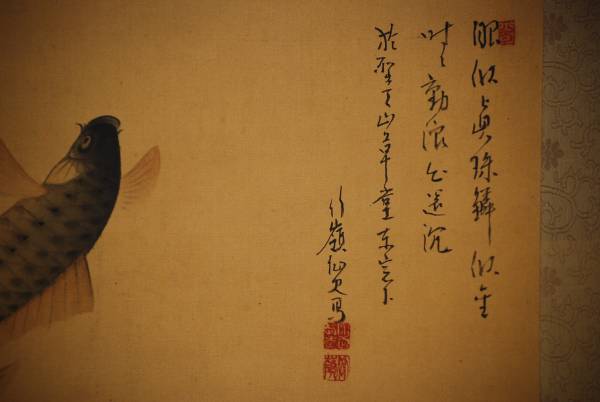 眼似眞珠鱗似金
時々動浪出還沈
於聖天山草堂東窓下
竹嶺仙史写